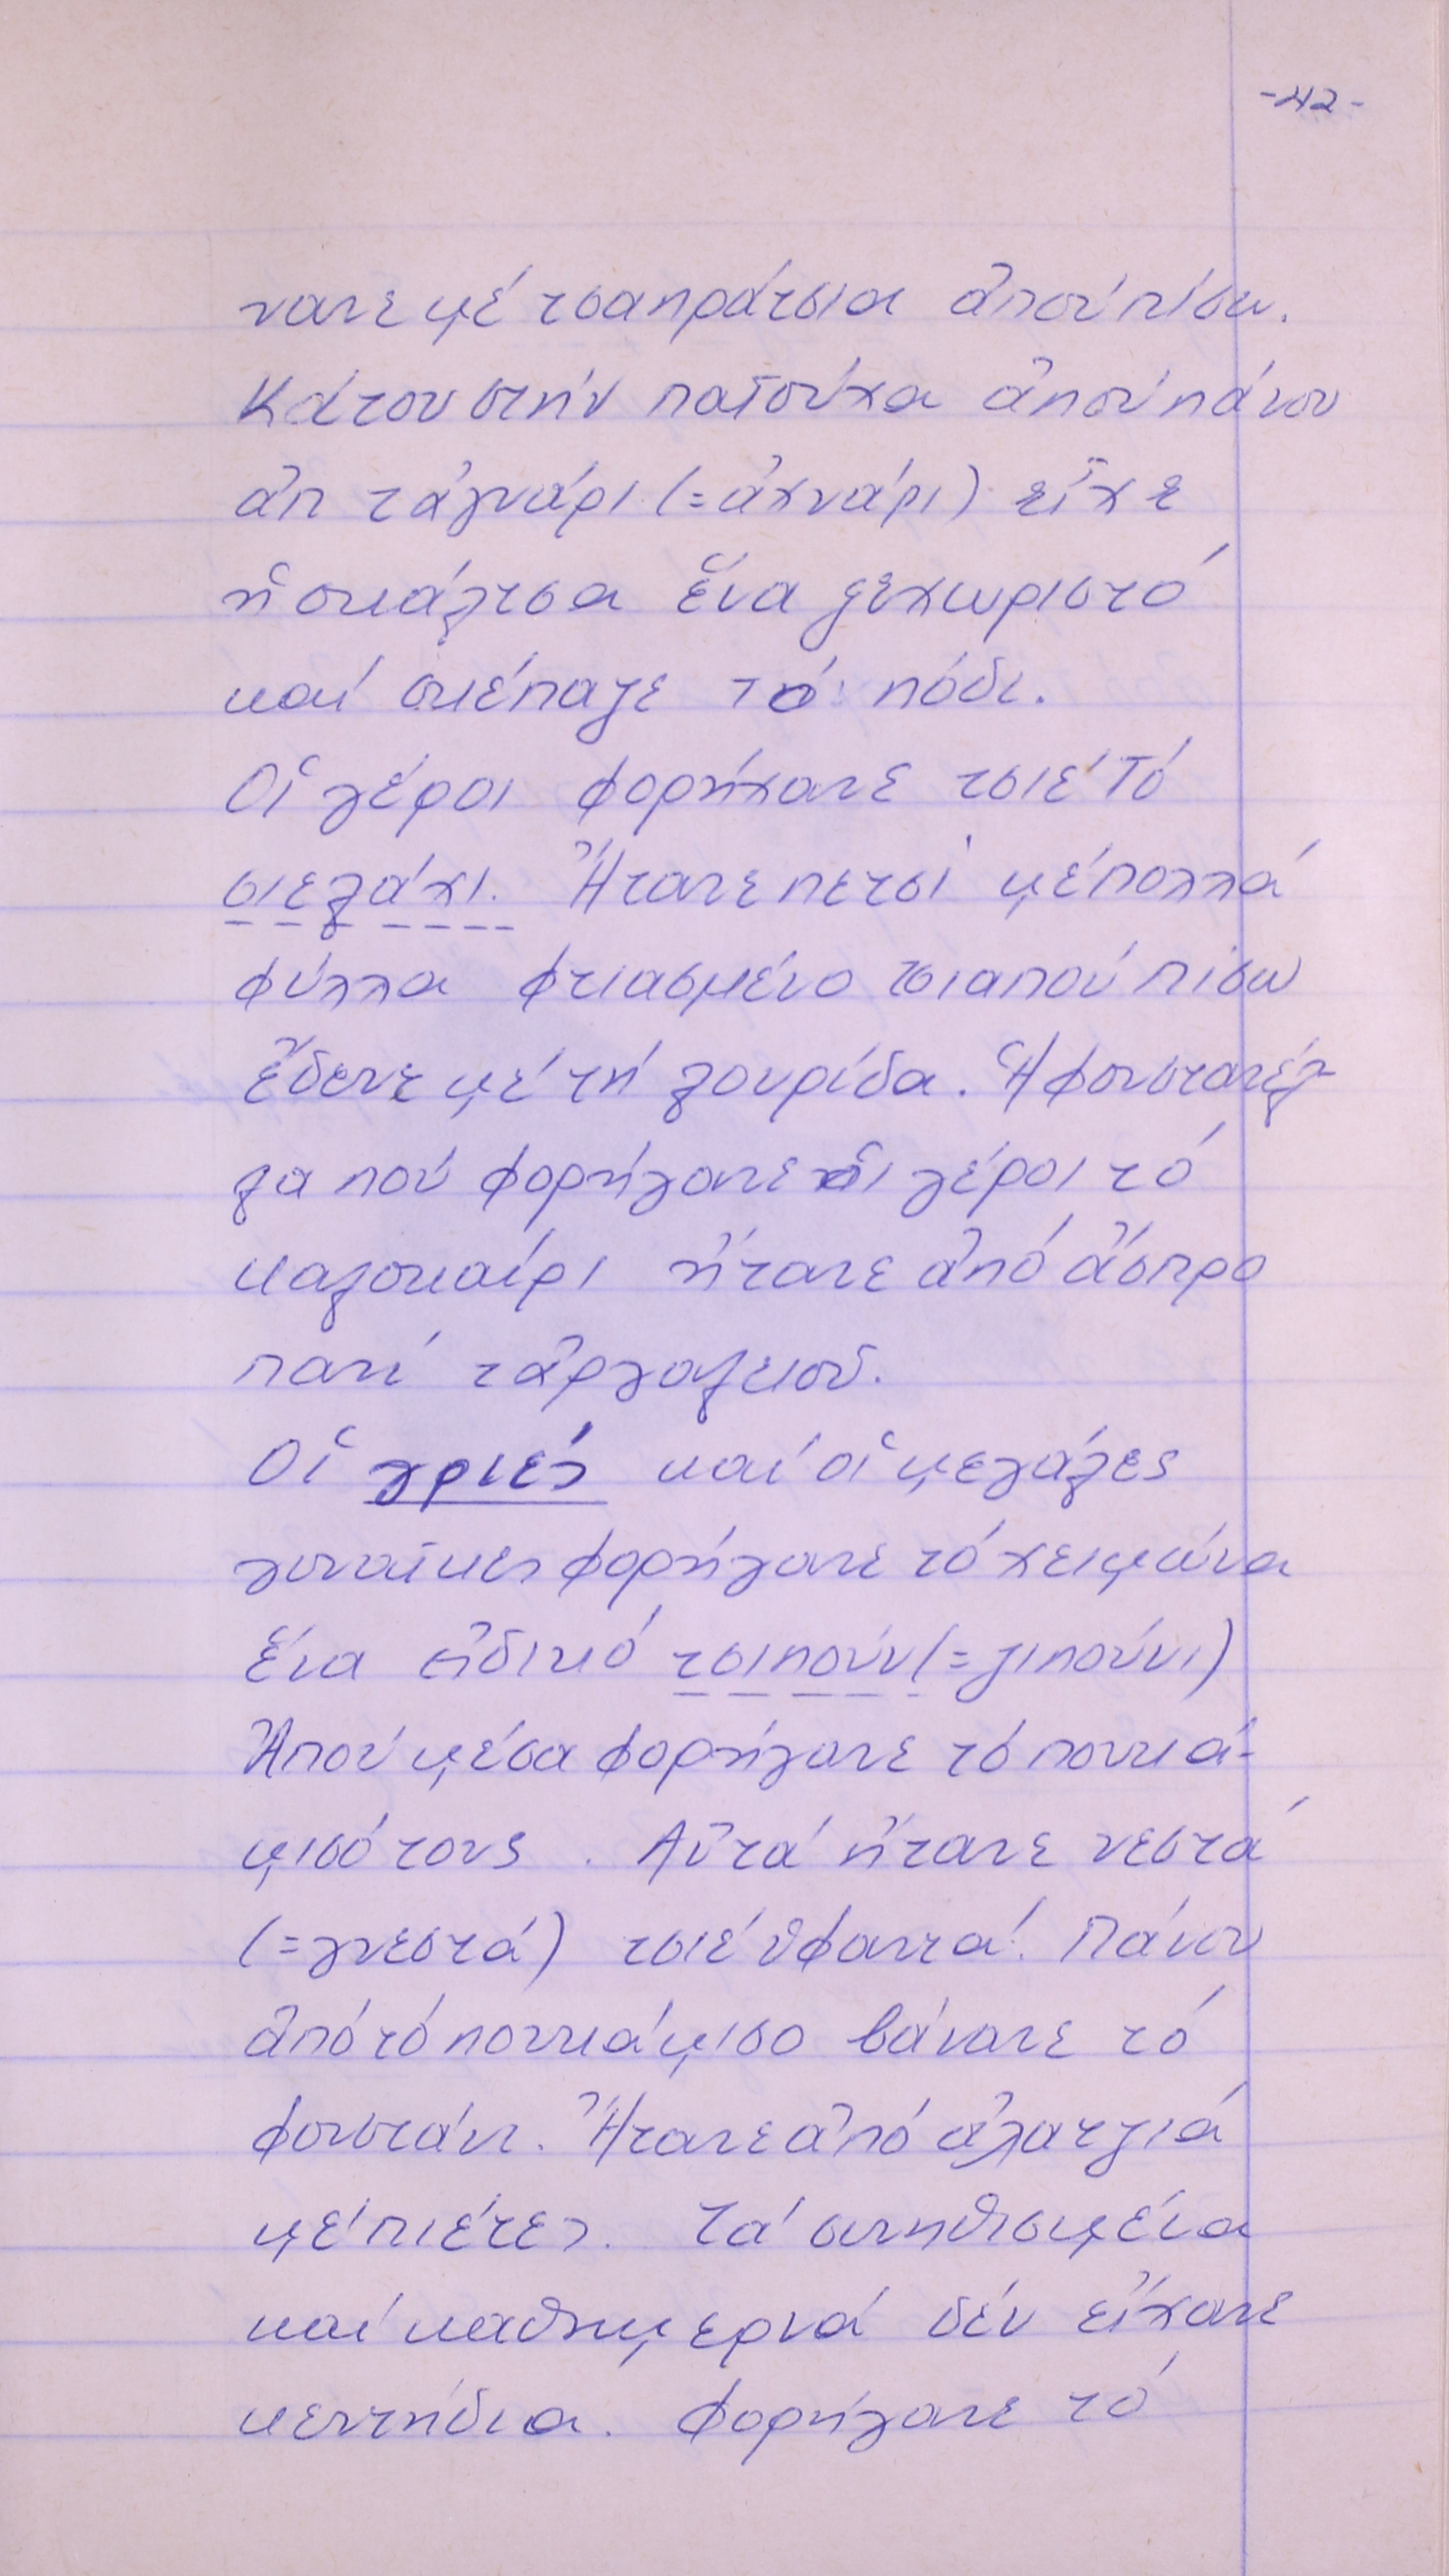 -42-
νανε μέ τσαπράτσια ἀπού πίσω.
Κάτου στήν πατούχα ἀπού πάνου
ἀπ τἀχνάρι (=ἀχνάρι) εἶχε
ἡ σκάλτσα ἕνα ξεχωριστό
καί σκέπαζε τό πόδι.
Οἱ γέροι φορήχανε τσιέ τό
σιελάχι. Ἤτανε πετσί μέ πολλά
φύλλα φτιασμένο τσιαπού πίσω
ἔδενε μέ τή λουρίδα. Ἡ φουστανέλ-
λα πού φορήγανε οἱ γέροι τό
καλοκαίρι ἤτανε ἀπό ἄσπρο
πανί τἀργαλειοῦ.
Οἱ γριές καί οἱ μεγάλες
γυναῖκες φορήγανε τό χειμώνα
ἕνα εἰδικό τσιπούν(=ζιπούνι)
Ἀπού μέσα φορήγανε τό πουκά-
μισό τους. Αὐτά ἤτανε νεστά
(=γνεστά) τσιέ ὑφαντά. Πάνου
ἀπό τό πουκάμισο βάνανε τό
φουστάνι. Ἤτανε ἀπό ἀλατζιά
μέ πιέτες. Τά συνηθισμένα
καί καθημερνά δέν εἴχανε
κεντήδια. Φορήγανε τό